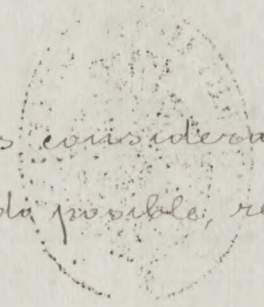 s considera
do posible, re